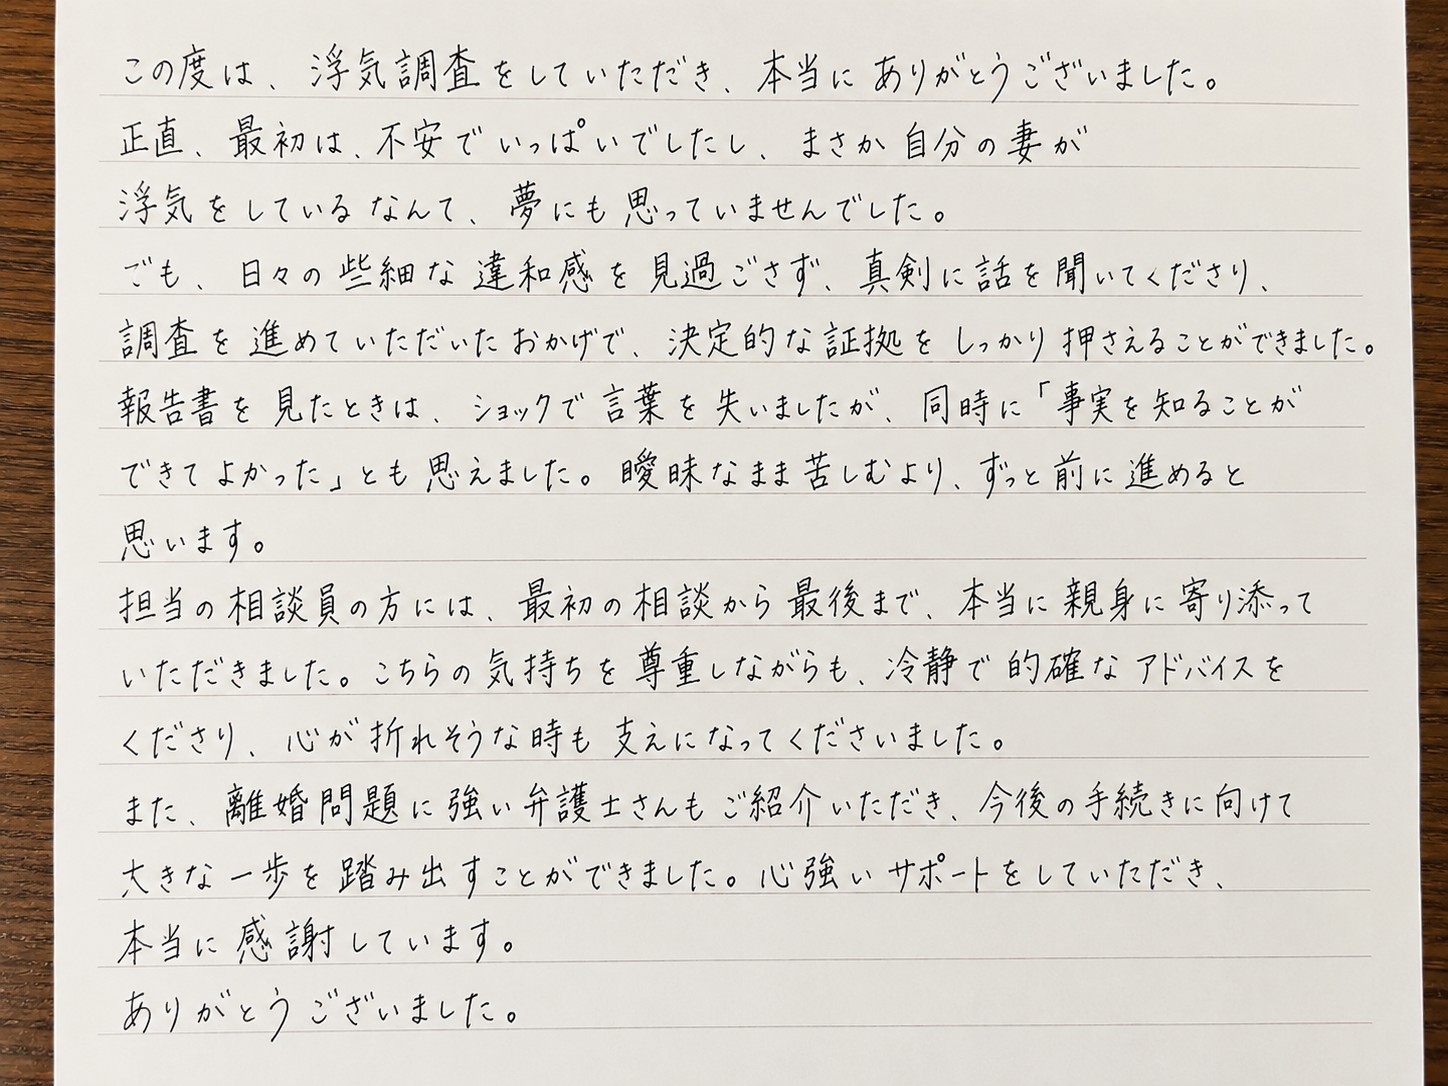 この度は、浮気調査をしていただき、本当にありがとうございました。
正直、最初は、不安でいっぱいでしたし、まさか自分の妻が
浮気をしているなんて、夢にも思っていませんでした。
でも、日々の些細な違和感を見過ごさず、真剣に話を聞いてくださり、
調査を進めていただいたおかげで、決定的な証拠をしっかり押さえることができました。
報告書を見たときは、ショックで言葉を失いましたが、同時に「事実を知ることが
できてよかった」とも思えました。曖昧なまま苦しむより、ずっと前に進めると
思います。
担当の相談員の方には、最初の相談から最後まで、本当に親身に寄り添って
いただきました。こちらの気持ちを尊重しながらも、冷静で的確なアドバイスを
くださり、心が折れそうな時も支えになってくださいました。
また、離婚問題に強い弁護士さんもご紹介いただき、今後の手続きに向けて
大きな一歩を踏み出すことができました。心強いサポートをしていただき、
本当に感謝しています。
ありがとうございました。